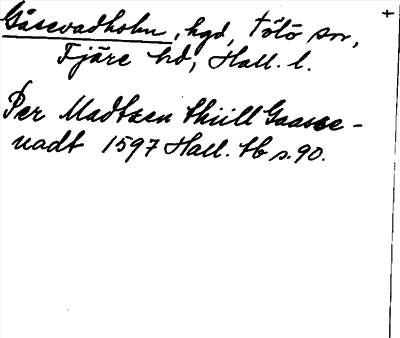 Gåsevadholm, hgd, Tölö sn,
Fjäre hd, Hall. l.
Per Madtzen thiill Gaasse-
vadt 1597 Hall. tb s. 90.